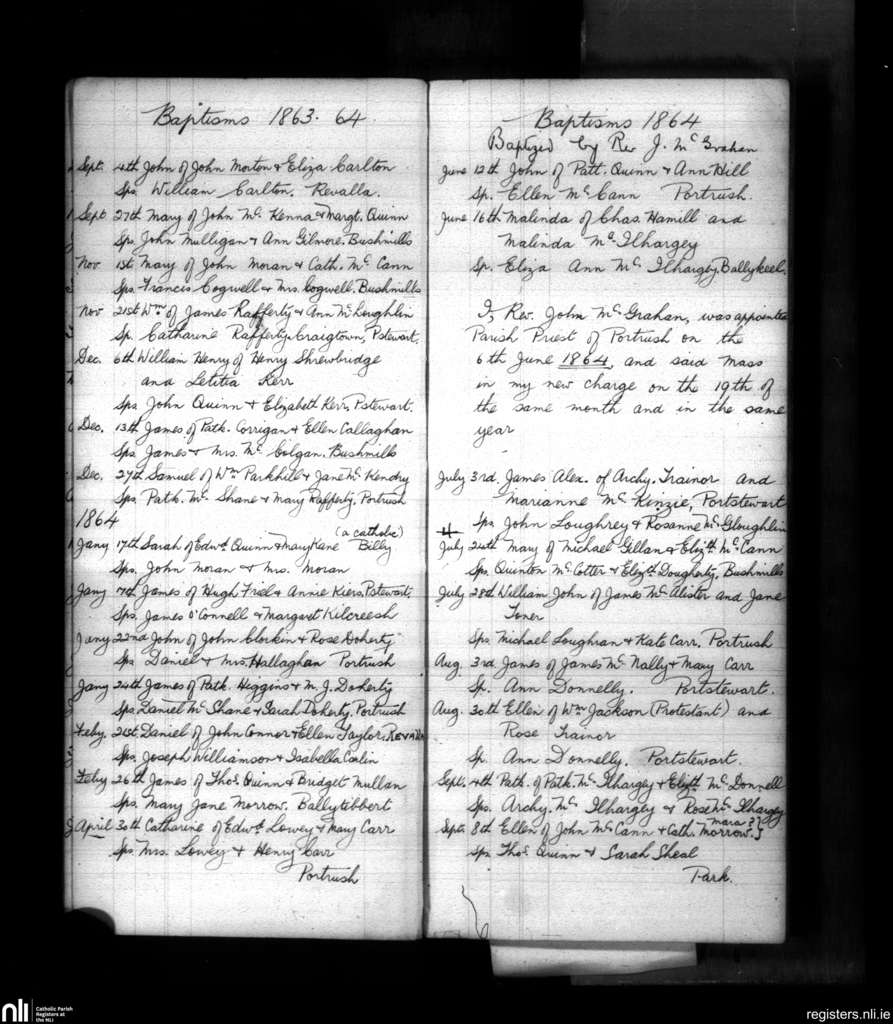 Baptisms 1863. 64
Sept. 4th John of John Morton & Eliza Carlton
Sps. William Carlton. Revalla.
Sept 27th Mary of John Mc. Kenna & Margt. Quinn
Sps. John Mulligan & Ann Gilmore. Bushmills
Nov 1st Mary of John Moran & Cath. Mc Cann
Sps. Francis Cogwell & Mrs. Cogwell. Bushmills
Nov 21st Wm of James Rafferty & Ann McLoughlin
Sp. Catharine Rafferty. Craigtown, Pstewart.
Dec. 6th William Henry of Henry Shrewbridge
and Letitia Kerr
Sps John Quinn & Elizabeth Kerr, Pstewart.
Dec. 13th James of Patk. Corrigan & Ellen Callaghan
Sps James & Mrs. Mc Colgan. Bushmills
Dec. 27th Samuel of Wm Parkhill & Jane Mc Kendry
Sps Patk. Mc Shane & Mary Rafferty, Portrush
1864
(a catholic)
Jany 17th Sarah of Edwd. Quinn & Mary Kane Billy
Sps. John Moran & Mrs. Moran
Jany 17th James of Hugh Friel & Annie Kiers, Pstewart.
Sps. James O'Connell & Margaret Kilcreesh
Jany 22nd John of John Clorkin & Rose Doherty
Sps Daniel & Mrs. Hallaghan Portrush
Jany 24th James of Patk. Higgins & M. J. Doherty
Sps. Daniel Mc Shane & Sarah Doherty. Portrush
Feby. 21st Daniel of John Connor & Ellen Taylor, Revalla
Sps. Joseph Williamson & Isabella Conlin
Feby 26th James of Thos. Quinn & Bridget Mullan
Sps. Mary Jane Morrow. Ballytibbert
April 30th Catharine of Edwd. Lowey & Mary Carr
Sps Mrs. Lowey & Henry Carr
Portrush
Baptisms 1864
Baptized by Rev J. Mc Grahan
June 12th John of Patt. Quinn & Ann Hill
Sp. Ellen Mc Cann Portrush.
June 16th Malinda of Chas. Hamill and
Malinda Mc Ilhargey
Sp. Eliza Ann Mc Ilhargey, Ballykeel.
I, Rev. John Mc Grahan, was appointed
Parish Priest of Portrush on the
6th June 1864, and said Mass
in my new charge on the 19th of
the same month and in the same
year
July 3rd. James Alex. of Archy. Trainor and
Marianne Mc Kinzie, Portstewart
Sps John Loughrey & Rosanne Mc Gloughlin
July 24th Mary of Michael Gillan & Elizth. Mc Cann
Sps. Quinton Mc Cotter & Elizth Dougherty, Bushmills
July 28th William John of James Mc Alister and Jane
Toner
Sps. Michael Loughran & Kate Carr. Portrush
Aug. 3rd James of James Mc Nally & Mary Carr
Sp. Ann Donnelly. Portstewart.
Aug. 30th Ellen of Wm Jackson (Protestant) and
Rose Trainor
Sp. Ann Donnelly. Portstewart.
Sept. 4th Patk. of Patk. Mc Ilhargey & Elizth. Mc Donnell
Sps. Archy. Mc Ilhargey & Rose Mc Ilhargey
Mara ?}
Sept. 8th Ellen of John Mc Cann & Cath. Morrow.
Sps Thos. Quinn & Sarah Sheal
Park.
nli Catholic Parish
Registers at
the NLI
registers.nli.ie